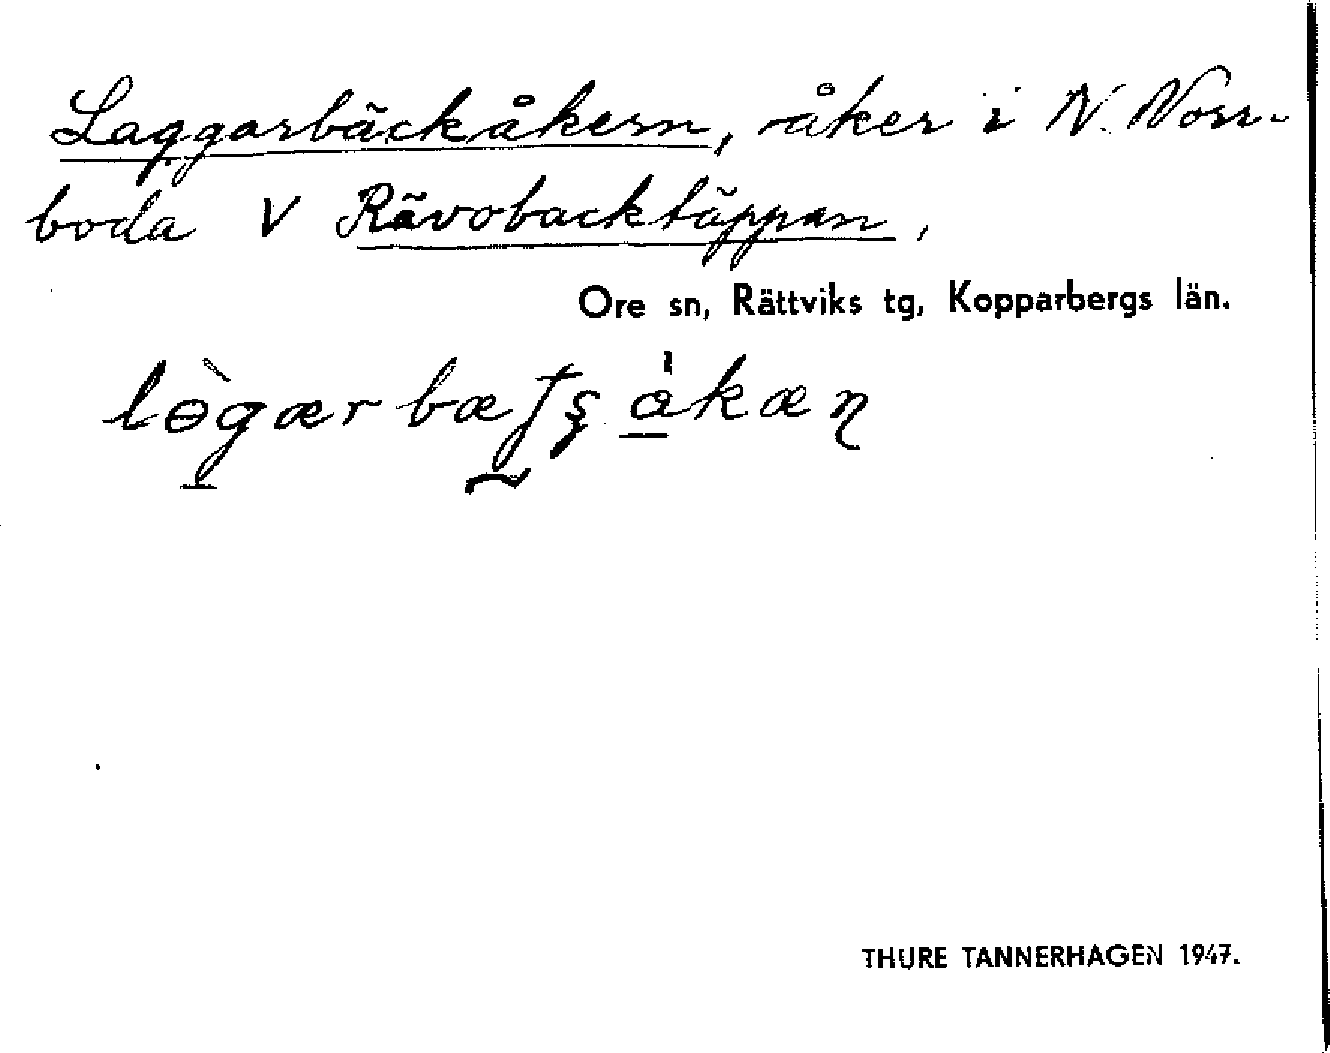 Laggarbäckåkern, åker i N. Norr-
boda V Rävobacktäppan,
Ore sn, Rättviks tg, Kopparbergs län.
THURE TANNERHAGEN 1947.